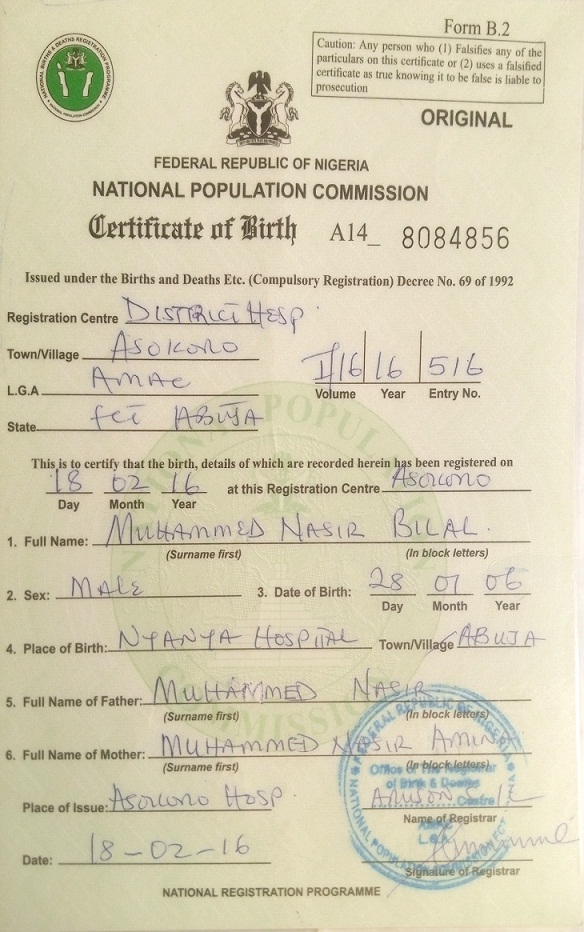 Form B.2
Caution: Any person who (1) Falsifies any of the
particulars on this certificate or (2) uses a falsified
certificate as true knowing it to be false is liable to
prosecution
ORIGINAL
FEDERAL REPUBLIC OF NIGERIA
NATIONAL POPULATION COMMISSION
Certificate of Birth A14_ 8084856
Issued under the Births and Deaths Etc. (Compulsory Registration) Decree No. 69 of 1992
Registration Centre DISTRICT HOSP.
Town/Village ASOKORO
L.G.A AMAC
I/16 16 516
Volume Year Entry No.
State FCT ABUJA
This is to certify that the birth, details of which are recorded herein has been registered on
18 02 16 at this Registration Centre ASOKORO
Day Month Year
1. Full Name: MUHAMMED NASIR BILAL.
(Surname first) (In block letters)
2. Sex: MALE 3. Date of Birth: 28 01 06
Day Month Year
4. Place of Birth: NYANYA HOSPITAL Town/Village ABUJA
5. Full Name of Father: MUHAMMED NASIR.
(Surname first) (In block letters)
6. Full Name of Mother: MUHAMMED NASIR AMINA
(Surname first) (In block letters)
Place of Issue: ASOKORO HOSP.
Name of Registrar
Date: 18-02-16
Signature of Registrar
NATIONAL REGISTRATION PROGRAMME